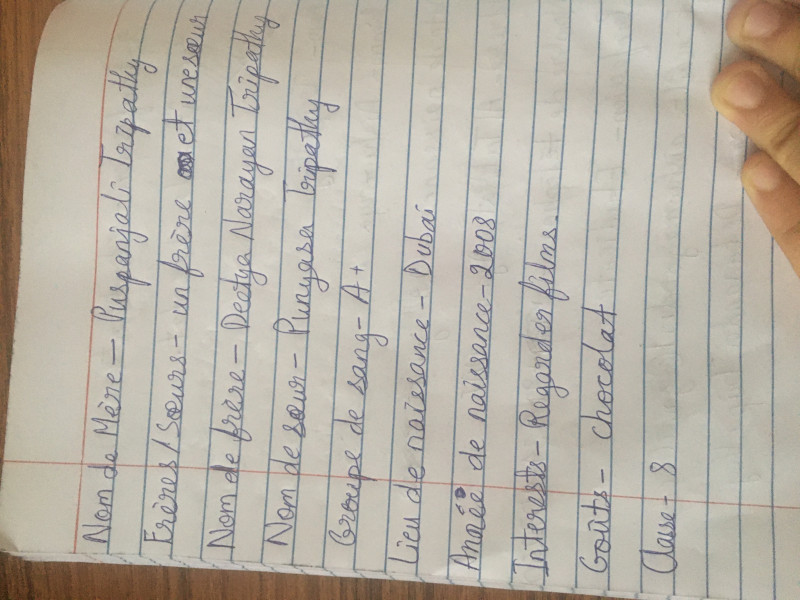 Nom de Mère - Puspanjali Tripathy
Frères / Sœurs - un frère et une sœur
Nom de frère - Deotya Narayan Tripathy
Nom de sœur - Punyasa Tripathy
Groupe de sang - A+
Lieu de naissance - Dubai
Année de naissance - 2008
Interests - Regarder films.
Goûts - chocolat
Classe - 8